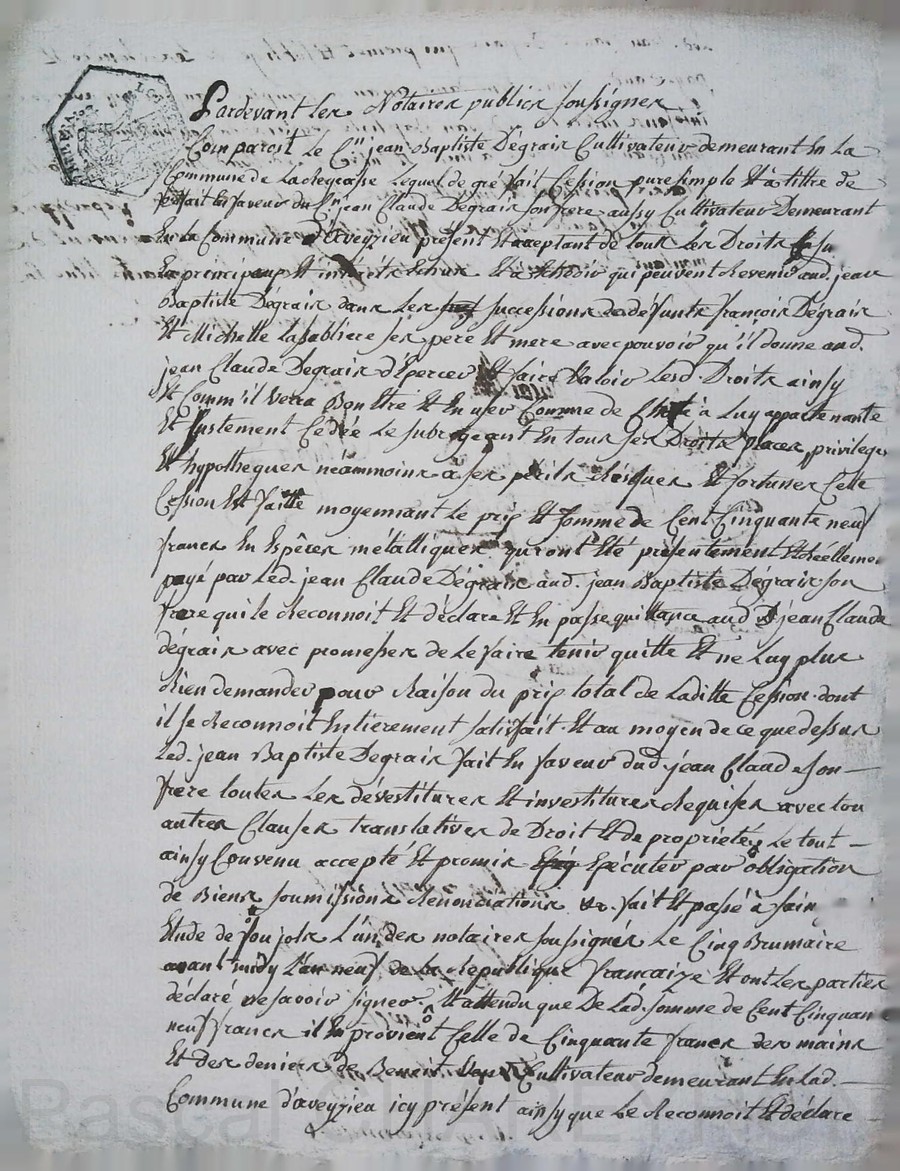 Pardevant les Notaires publics soussignes
Comparoit Le Cn jean Baptiste Dégrais Cultivateur demeurant En La
Commune de La Lequel de gré fait Cession pure simple Et à tittre de
forfait En faveur du Cn jean Claude Degrais son frere aussy Cultivateur Demeurant
En la Commune d'aveyzieu présent Et acceptant de tous Les Droits
En principaux Et intérêts Echus Et à Echéoir qui peuvent Revenir aud. jean
Baptiste Dégrais dans Les successions de défunts françois Dégrais
Et Michelle Lasabliere Ses pere Et mere avec pouvoir qu'il donne aud.
jean Claude Degrais d'Epercer Et faire Valoir Lesd. Droits ainsy
Et Comm'il Verra Bon Etre Et En user Comme de Chose à Luy appartenante
Et Justement Cédée Le subrogeant En tous ses Droits places, privileges
Et hypotheques néammoins à ses périls Risques Et fortunes Cette
Cession Est faitte moyennant Le prix Et Somme de Cent Cinquante neuf
francs En Espêces métalliques qui ont Eté présentement Et Réellemen
payé par Led. jean Claude Dégrais aud. jean Baptiste Dégrais son
frere qui le Reconnoit Et déclare Et En passe quittance aud. jean Claude
dégrais avec promesses de Le faire tenir quitte Et ne Luy plus
Rien demander pour Raison du prix total de Laditte Cession. dont
il se Reconnoit Entièrement satisfait. Et au moyen de ce que dessus
Led. jean Baptiste Degrais fait En faveur dud. jean Claude son
frere toutes Les dévestitures Et investitures Requises avec tou
autres Clauses translatives de Droit Et de propriété, Le tout
ainsy Convenu accepté Et promis Exécuter par obligation
de Biens soumissions Renonciations &c. fait Et passé à
Etude de L'un des notaires soussignés Le Cinq Brumaire
avant midy L'an neuf de La Republique francaize Et ont Les parties
déclaré ne savoir signer. Et attendu que De Lad. somme de Cent Cinquan
neuf francs il En provient Celle de Cinquante francs des mains
Et des deniers de Benoit Cultivateur demeurant En Lad.
Commune d'aveyzieu icy présent ainsy que Le Reconnoit Et déclare